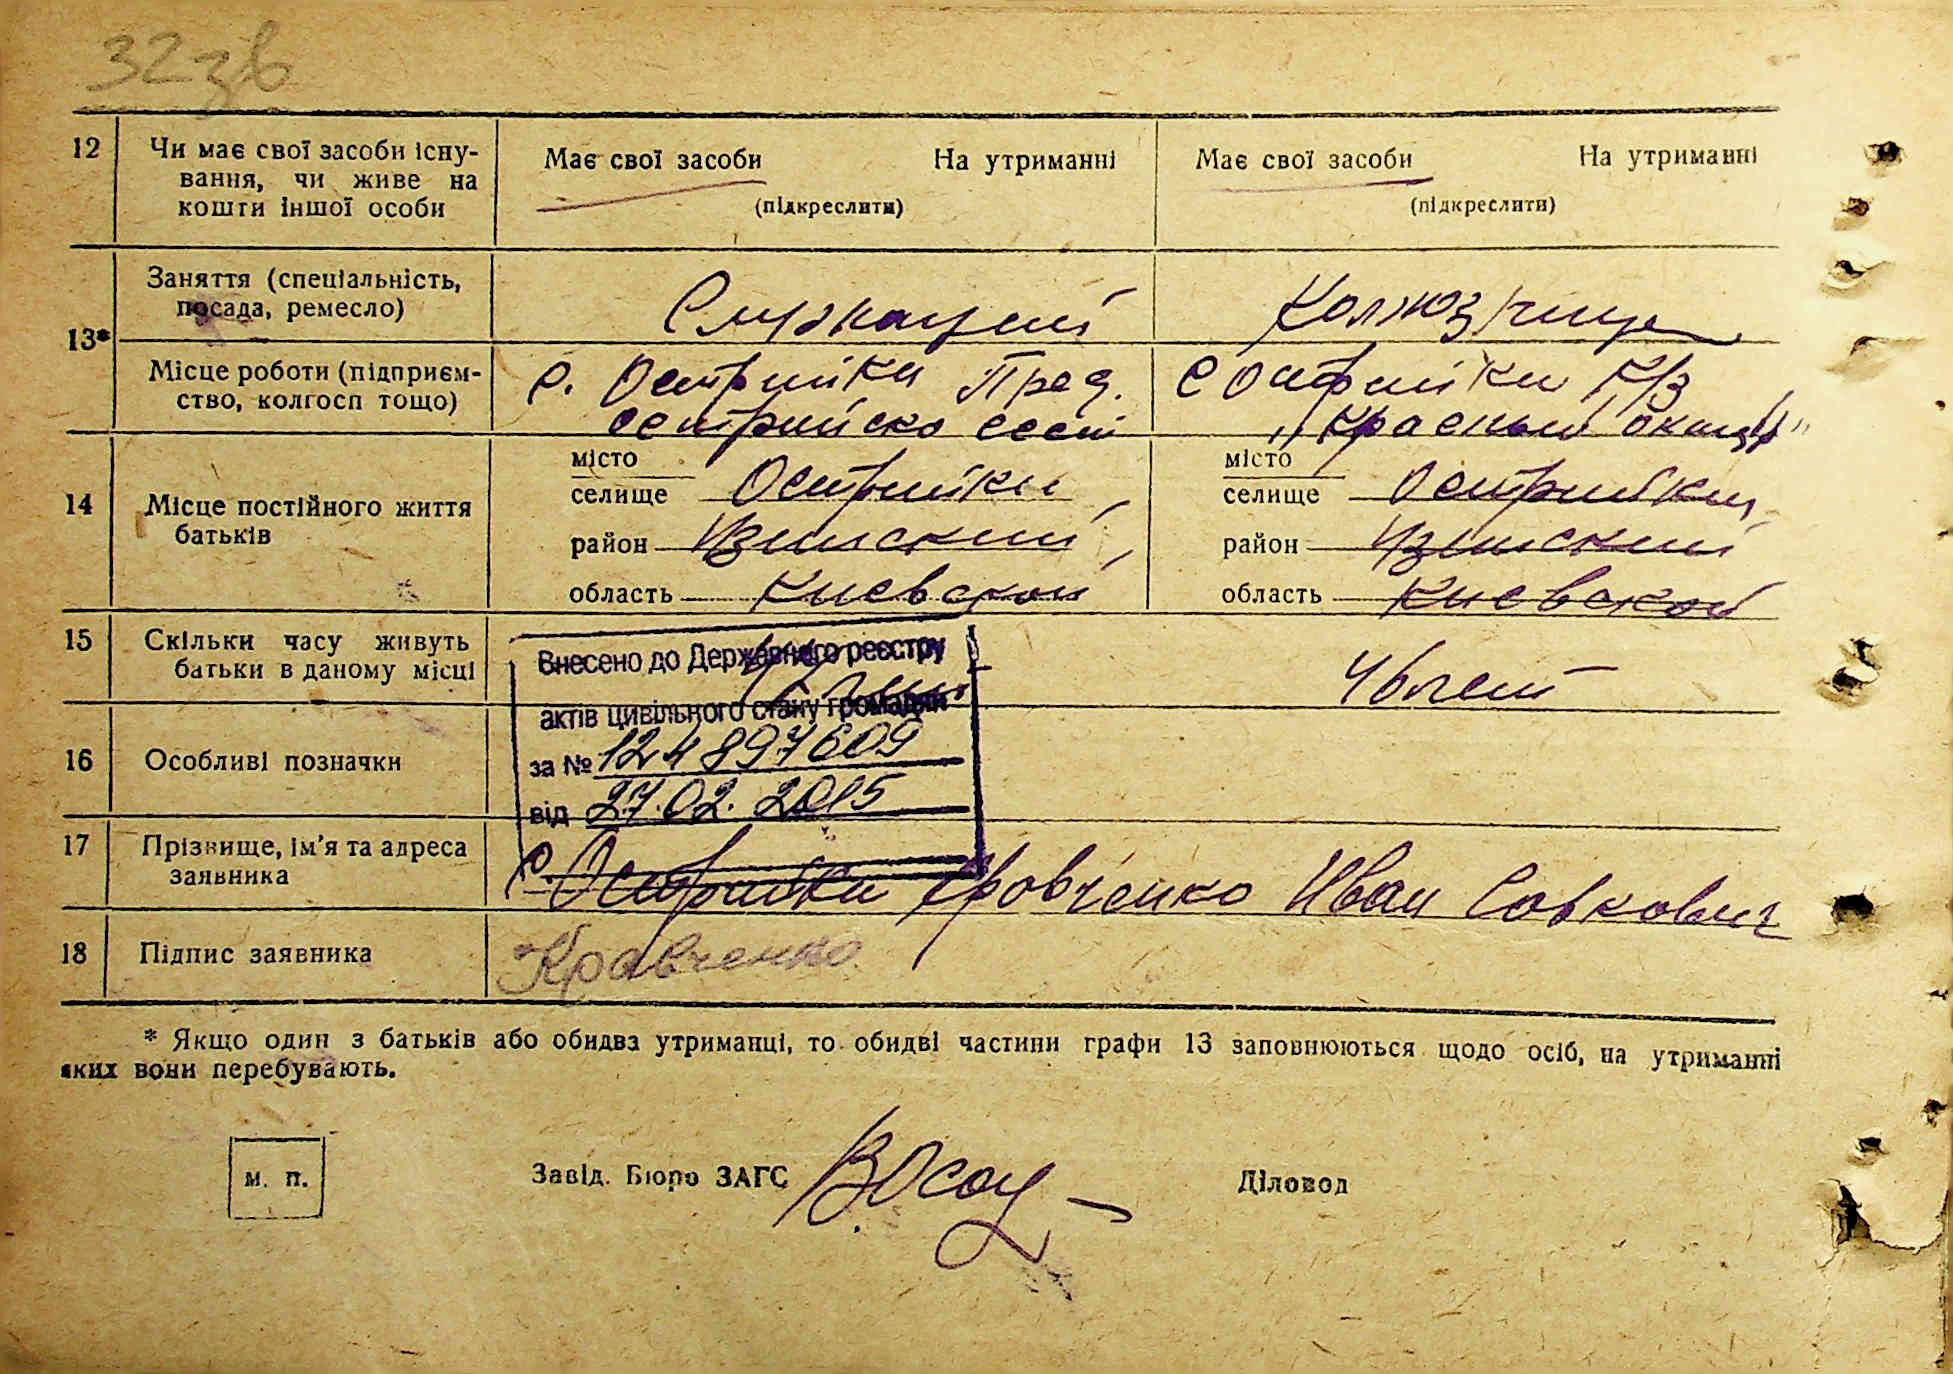 32зв
12 Чи має свої засоби існу-
вання, чи живе на
кошти іншої особи
Має свої засоби На утриманні
(підкреслити)
Має свої засоби На утриманні
(підкреслити)
13*
Заняття (спеціальність,
посада, ремесло)
Служащий
Колхозница
Місце роботи (підприєм-
ство, колгосп тощо)
с. Острийки Пред.
с Острийки К/з
"Красный
14 Місце постійного життя
батьків
місто
селище Острийки
район Узинский
область Киевской
місто
селище Острийки
район Узинский
область Киевской
15 Скільки часу живуть
батьки в даному місці
лет
Внесено до Державного реєстру
актів цивільного стану громадян
за № 124897609
від 27.02.2015
16 Особливі позначки
17 Прізвище, ім'я та адреса
заявника
с. Острийки Кровченко Иван Савкович
18 Підпис заявника
Кравченко
* Якщо один з батьків або обидва утриманці, то обидві частини графи 13 заповнюються щодо осіб, на утриманні
яких вони перебувають.
м. п.
Завід. Бюро ЗАГС
Діловод